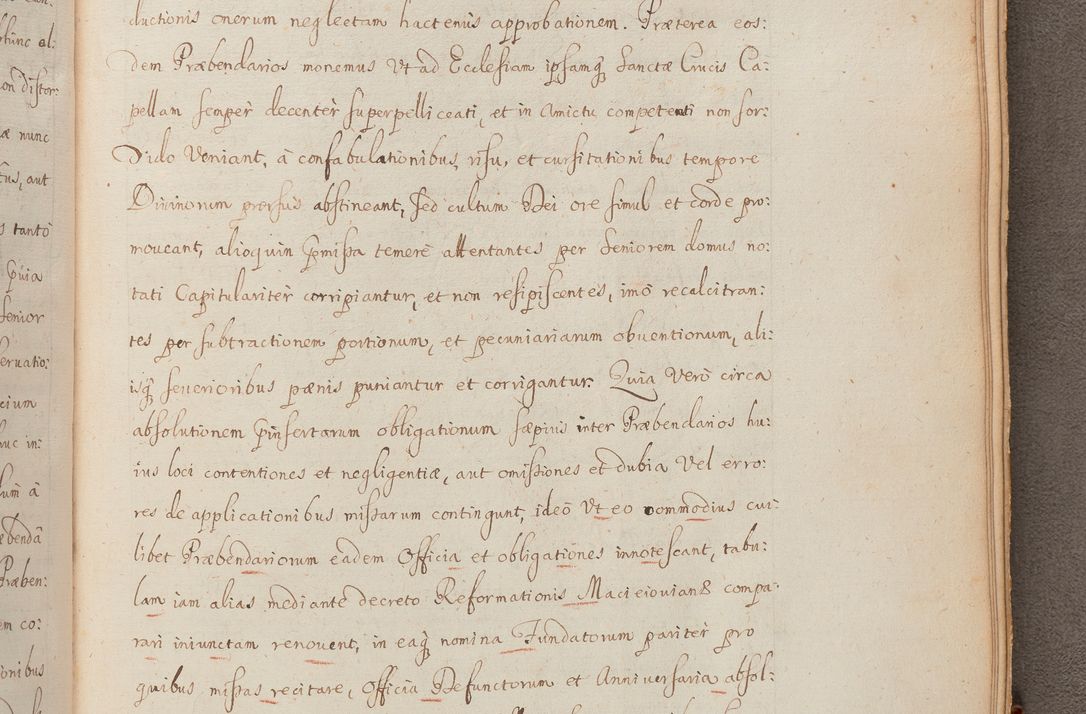 ductionis onerum neglectam hactenus approbationem. Præterea eos:
dem Præbendarios monemus Vt ad Ecclesiam ipsamq́ Sanctæ Crucis Ca:
pellam semper decenter superpelliceati, et in Amictu competenti non sor:
dido Veniant, à confabulationibus, risu, et cursitationibus tempore
Diuinorum prorsus abstineant, Sed cultum Dei ore simul et corde pro:
moueant, alioquin p̃missa temerè attentantes per Seniorem domus no:
tati Capitulariter corripiantur, et non resipiscentes, imò recalcitran:
tes per subtractionem portionum, et pecuniariarum obuentionum, ali:
isq́ seuerioribus pænis puniantur et corrigantur. Quia Verò circa
absolutionem p̃insertarum obligationum sæpius inter Præbendarios hu:
ius loci contentiones et negligentiæ, aut omissiones et dubia Vel erro:
res de applicationibus missarum contingunt, ideò Vt eo commodius cui:
libet Præbendariorum eadem Officia et obligationes innotescant, tabu:
lam iam alias mediante decreto Reformationis Macieiouianæ compa:
rari iniunctam renouent, in eaq́ nomina Fundatorum pariter pro
quibus missas recitare, Officia Defunctorum et Anniuersaria absol:
on distor:
æ nunc
tus, aut
s tantò
Senior
eruatio:
uc in:
ebendã
Præben:
em co:
onibus